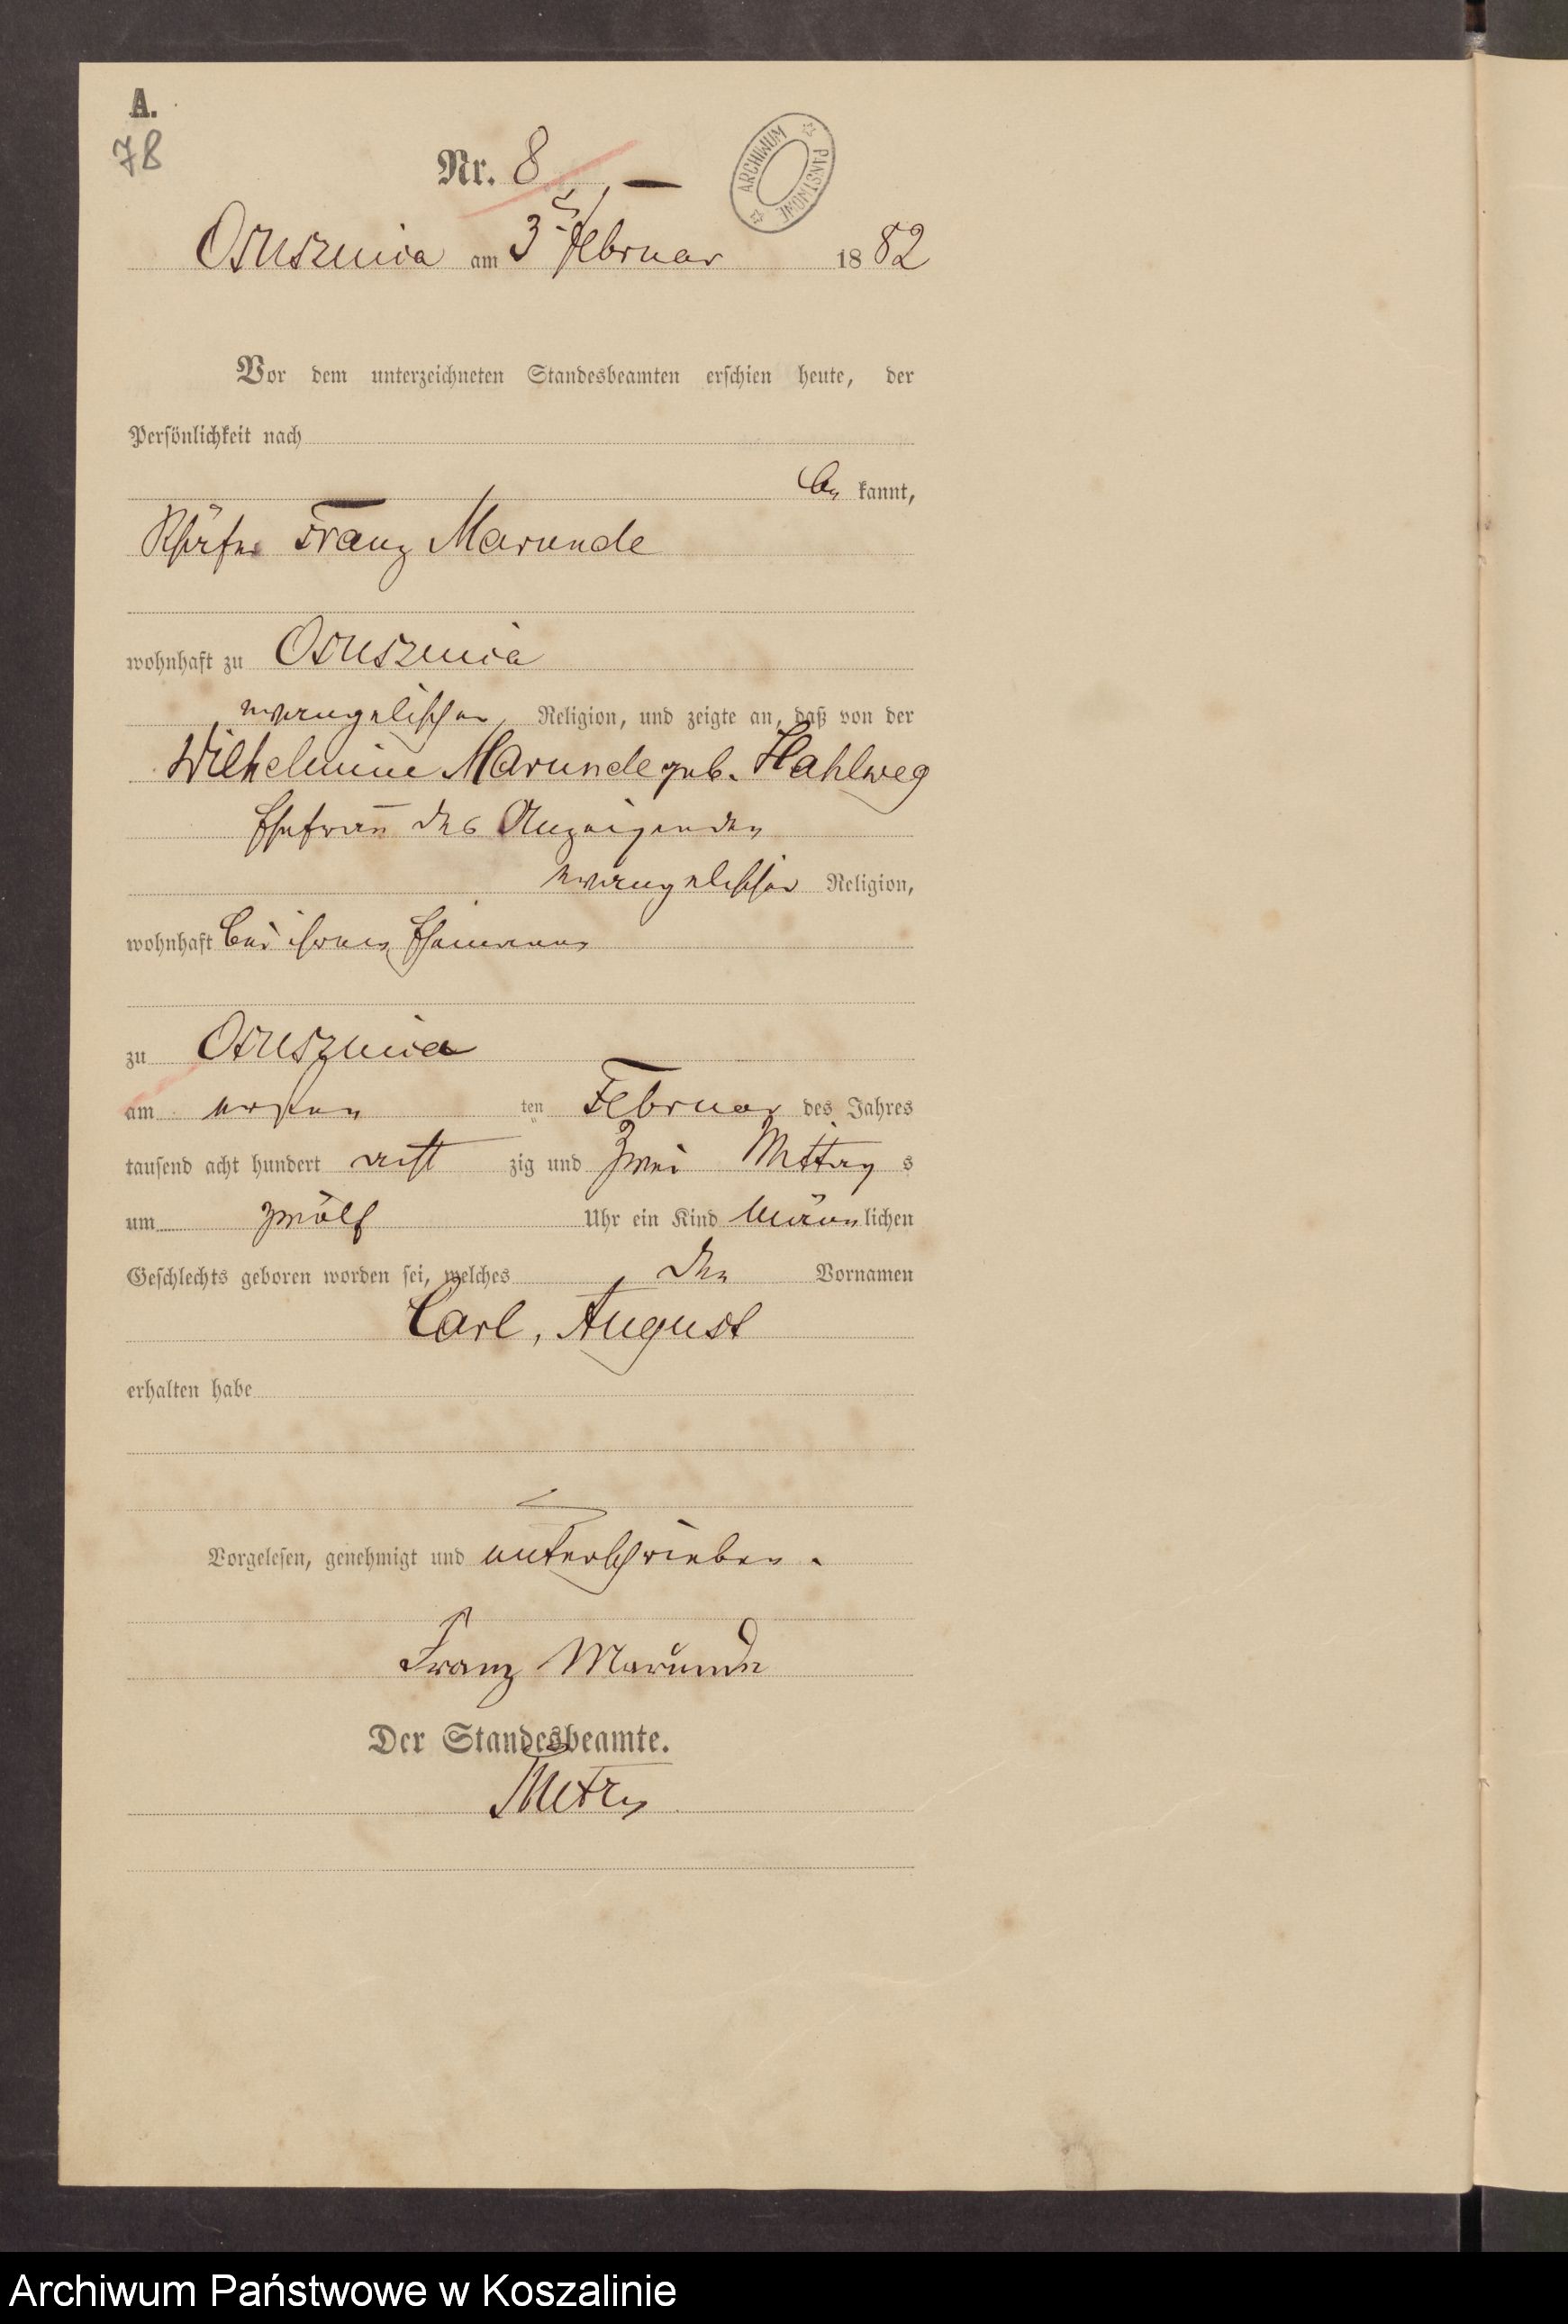 A.
78
Nr. 8
ARCHIWUM PAŃSTWOWE
Osuszniza am 3ᵗ Februar 1882
Vor dem unterzeichneten Standesbeamten erschien heute, der
Persönlichkeit nach
be kannt,
Schäfer Franz Marunde
wohnhaft zu Osuszniza
evangelischer Religion, und zeigte an, daß von der
Wilhelmine Marunde geb. Hahlweg
Ehefrau des Anzeigenden
evangelischer Religion,
wohnhaft bei ihrem Ehemann
zu Osuszniza
am ersten ten Februar des Jahres
tausend acht hundert acht zig und zwei Mittag s
um zwölf Uhr ein Kind männ lichen
Geschlechts geboren worden sei, welches den Vornamen
Carl, August
erhalten habe
Vorgelesen, genehmigt und unterschrieben.
Franz Marunde
Der Standesbeamte.
Archiwum Państwowe w Koszalinie